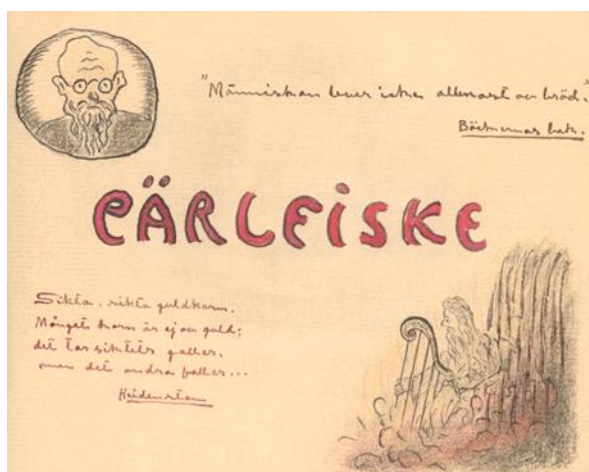 "Människan lever icke allenast av bröd."
Böckernas bok.
PÄRLFISKE
Sikta, sikta guldkorn.
Månget korn är ej av guld;
det tar siktets galler,
men det andra faller...
Heidenstam